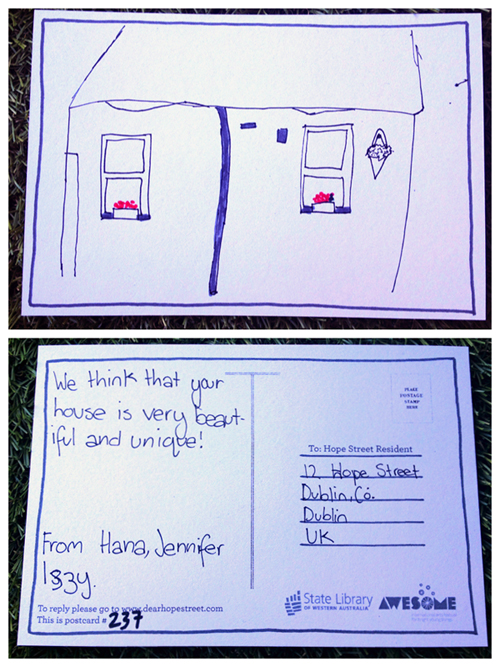 We think that your
house is very beaut-
iful and unique!
From Hana, Jennifer
Izzy.
To reply please go to www.dearhopestreet.com
This is postcard # 237
PLACE
POSTAGE
STAMP
HERE
To: Hope Street Resident
12 Hope Street
Dublin, Co.
Dublin
UK
State Library
OF WESTERN AUSTRALIA
AWESOME